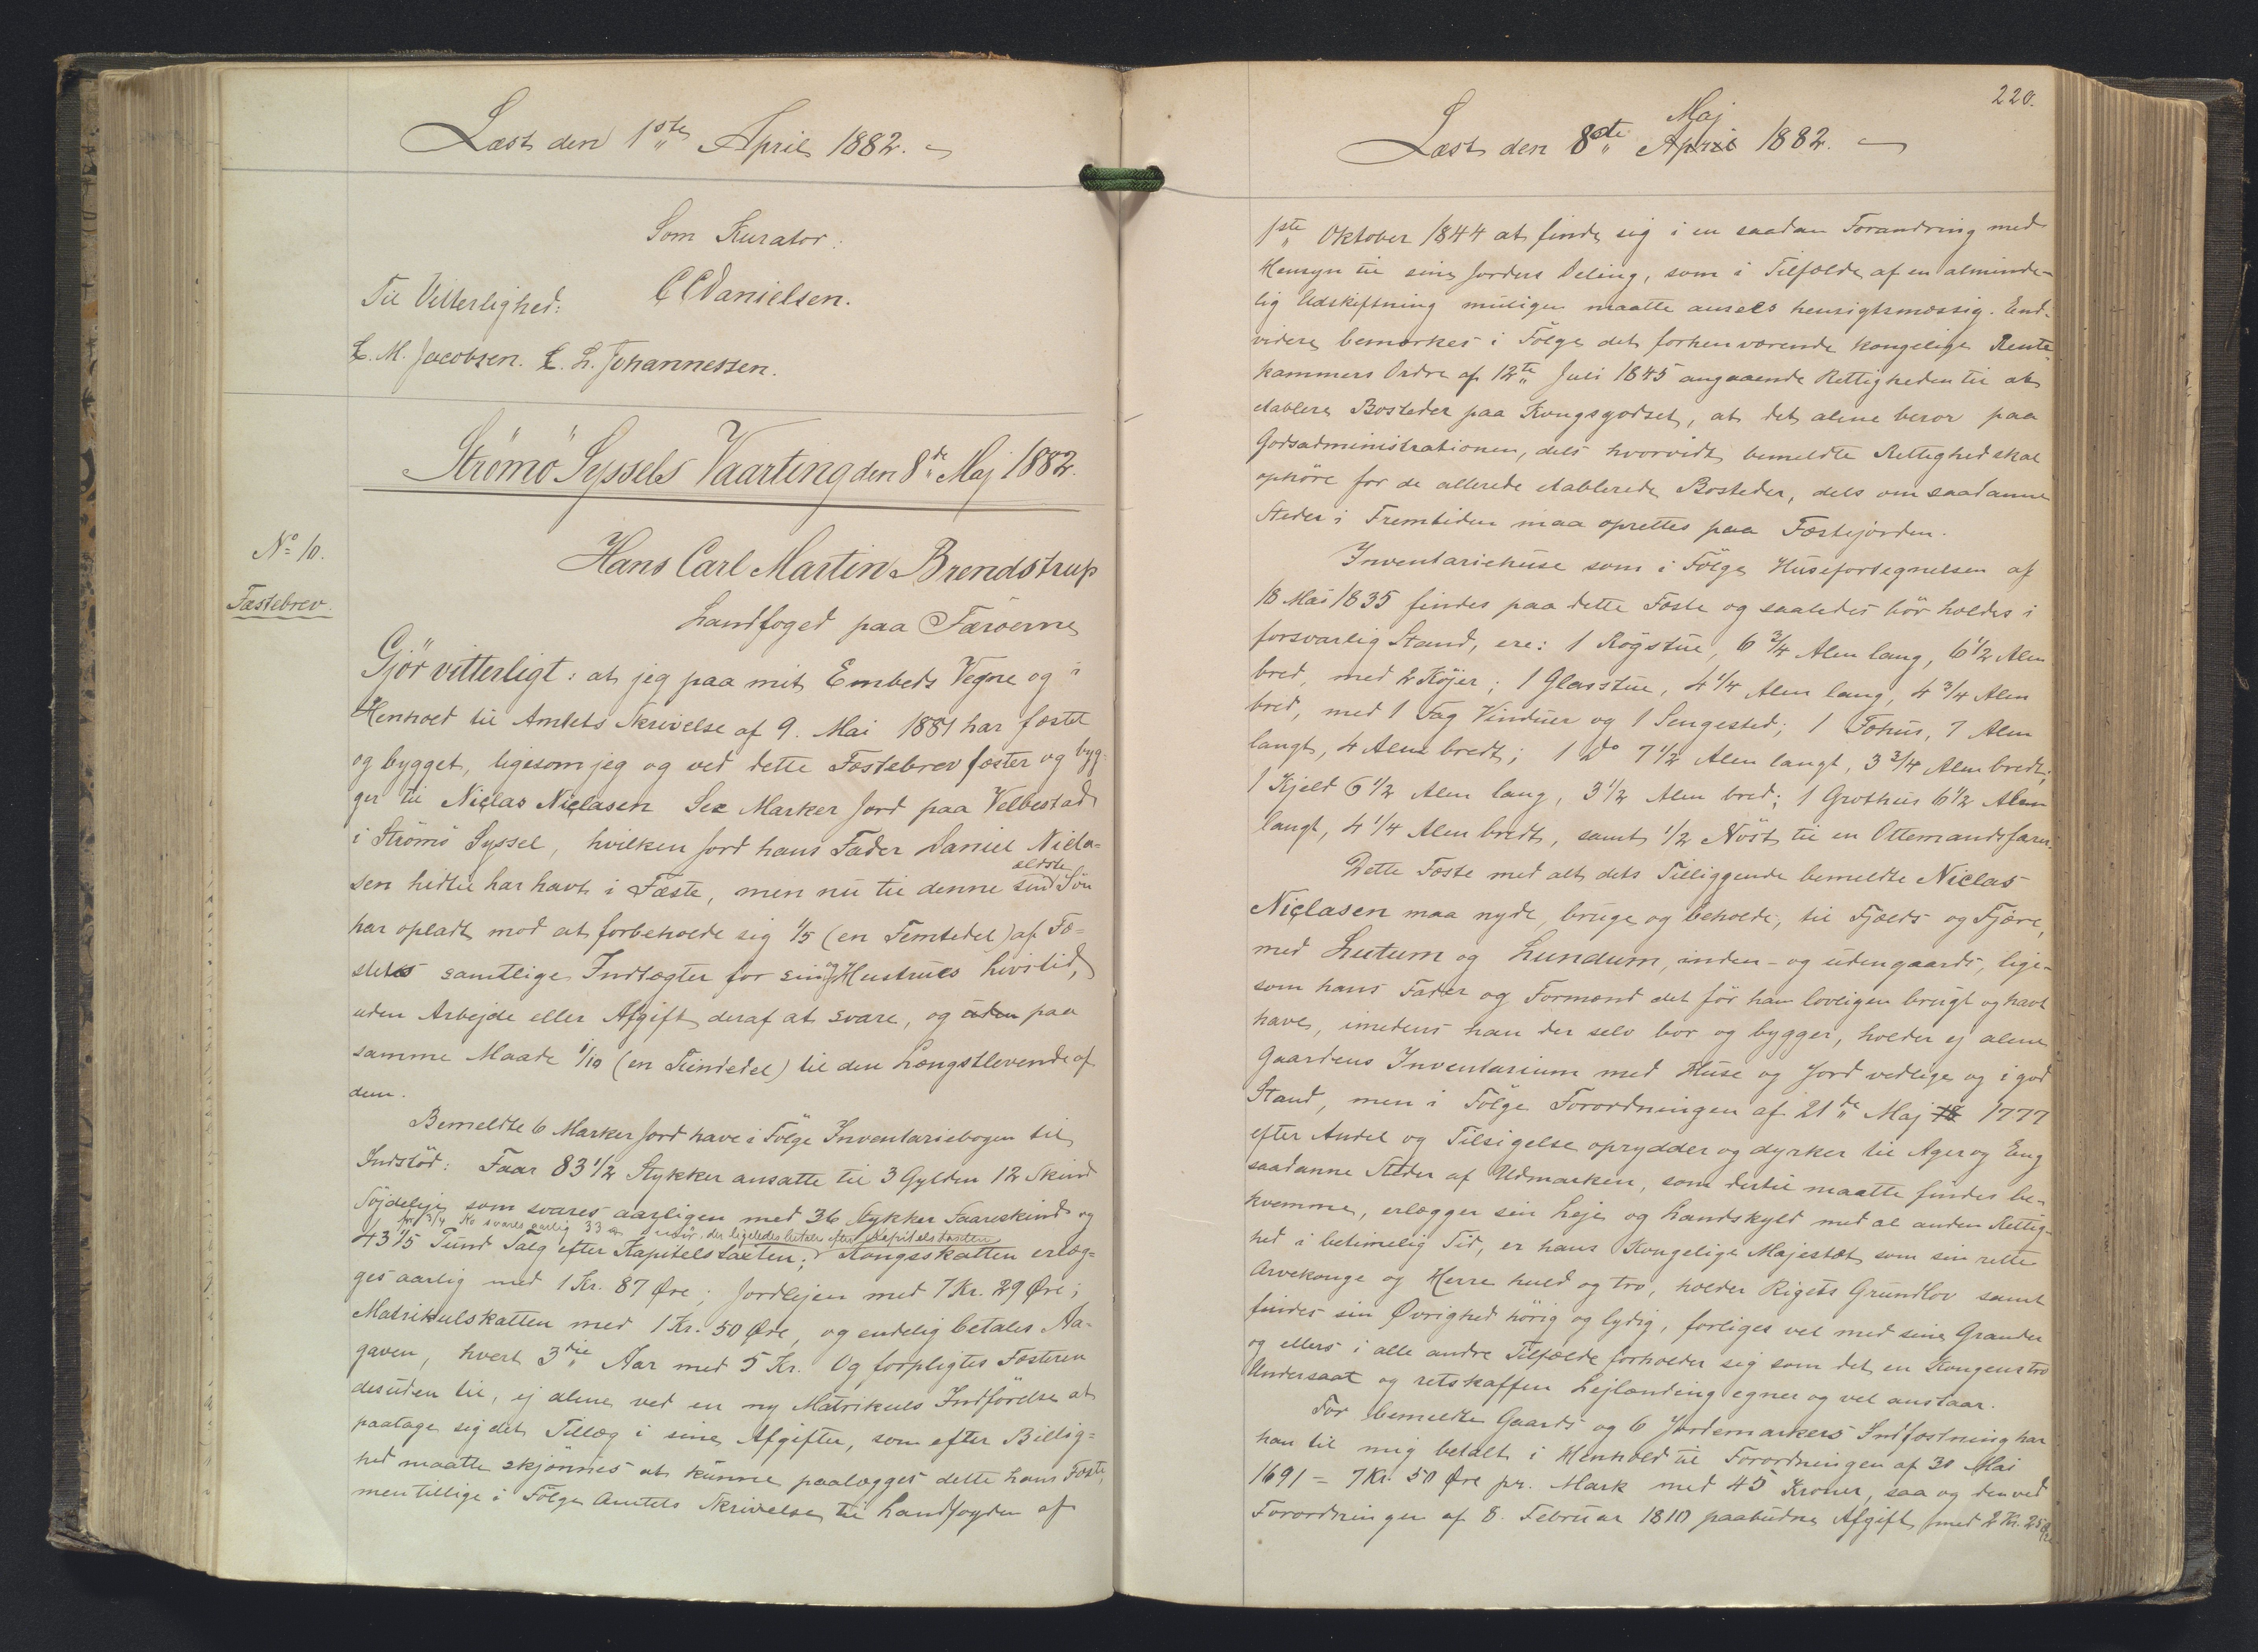 Læst den 1ste April 1882.
Som Kurator:
Til Vitterlighed: C C Danielsen.
L. M. Jacobsen. L. L. Johannessen.
Strömö Syssels Vaarting den 8de Maj 1882.
No 10.
Fæstebrev.
Hans Carl Martin Brendstrup
Landfoged paa Færöerne
Gjör vitterligt: at jeg paa mit Embeds Vegne og i
Henhold til Amtets Skrivelse af 9. Mai 1881 har fæstet
og bygget, ligesom jeg og ved dette Fæstebrev fæster og byg-
ger til Niclas Niclasen Sex Marker Jord paa Velbestad
i Strömö Syssel, hvilken Jord hans Fader Daniel Nicla=
sen hidtil har havt i Fæste, men nu til denne sin ældste Sön
har opladt mod at forbeholde sig 1/5 (en Femtedel) af Fæ=
stets samtlige Indtægter for sin og Hustrues Livstid,
uden Arbejde eller Afgift deraf at svare, og uden paa
samme Maade 1/10 (en Tiendedel) til den Længstlevende af
dem.
Bemeldte 6 Marker Jord have i Fölge Inventariebogen til
Indstöd: Faar 83 1/2 Stykker ansatte til 3 Gylden 12 Skind
Töjdeleje som svares aarligen med 36 Stykker Faareskind og
for 3/4 Ko svares aarlig 33 Smör, der ligeledes betales efter Kapitelstaxten
43 1/5 Pund Talg efter Kapitelstaxten; Kongsskatten erlæg=
ges aarlig med 1 Kr. 87 Øre; Jordlejen med 7 Kr. 29 Øre;
Matrikulskatten med 1 Kr. 50 Øre, og endelig betales Na-
gaven, hvert 3die Aar med 5 Kr. Og forpligtes Fæsteren
desuden til, ej alene ved en ny Matrikuls Indförelse at
paatage sig det Tillæg i sine Afgifter, som efter Billig=
hed maatte skjönnes at kunne paalægges dette hans Fæste,
men tillige i Fölge Amtets Skrivelse til Landfogden af
220.
Læst den 8de April Maj 1882.
1ste Oktober 1844 at finde sig i en saadan Forandring med
Hensyn til sine Jorders Deling, som i Tilfælde af en alminde-
lig Udskiftning muligen maatte ansees hensigtsmæssig. End-
videre bemærkes i Fölge det forhenværende kongelige Rente
kammers Ordre af 12te Juli 1845 angaaende Rettigheden til at
etablere Bosteder paa Kongsgodset, at det alene beror paa
Godsadministrationen, dels hvorvidt bemeldte Rettighed skal
ophöre for de allerede etablerede Bosteder, dels om saadanne
Steder i Fremtiden maa oprettes paa Fæstejorden.
Inventariehuse som i Fölge Husefortegnelsen af
18 Mai 1835 findes paa dette Fæste og saaledes bör holdes i
forsvarlig Stand, ere: 1 Rögstue, 6 3/4 Alen lang, 6 1/2 Alen
bred, med 2 Köjer; 1 Glasstue, 4 1/4 Alen lang, 4 3/4 Alen
bred, med 1 Fag Vinduer og 1 Sengested; 1 Fæhus, 7 Alen
langt, 4 Alen bredt; 1 do 7 1/2 Alen langt, 3 3/4 Alen bredt;
1 Kjeld 6 1/2 Alen lang, 3 1/2 Alen bred; 1 Grothus 6 1/2 Alen
langt, 4 1/4 Alen bredt, samt 1/2 Nöst til en Ottemandsfarer.
Dette Fæste med alt dets Tilliggende bemeldte Niclas
Niclasen maa nyde, bruge og beholde, til Fjælds og Fjære,
med Luttum og Lundum, inden- og udengaards, lige-
som hans Fader og Formænd det för ham lovligen brugt og havt
have, imedens han der selv bor og bygger, holder ej alene
Gaardens Inventarium med Huse og Jord vedlige og i god
Stand, men i Fölge Forordningen af 21de Maj 18 1777
efter Andel og Tilsigelse oprydder og dyrker til Ager og Eng
saadanne Steder af Udmarken, som dertil maatte findes be-
kvemme, erlægger sin Leje og Landskyld med al anden Rettig-
hed i betimelig Tid, er hans Kongelige Majestæt som sin rette
Arvekonge og Herre huld og tro, holder Rigets Grundlov samt
findes sin Øvrighed hörig og lydig, forliges vel med sine Grander
og ellers i alle andre Tilfælde forholder sig som det en Kongens tro
Undersaat og retskaffen Lejlænding egner og vel anstaar.
For bemeldte Gaards og 6 Jordemarkers Indfæstning har
han til mig betalt i Henhold til Forordningen af 30 Mai
1691 = 7 Kr. 50 Øre pr. Mark med 45 Kroner, saa og den ved
Forordningen af 8. Februar 1810 paabudne Afgift med 2 Kr. 25 Øre